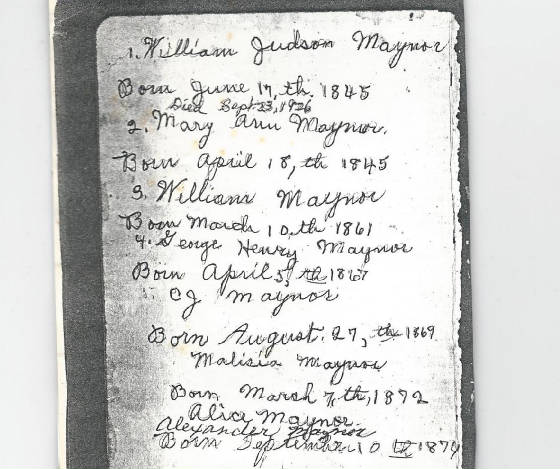 1. William Judson Maynor
Born June 17, th. 1845
Died Sept. 23, 1926
2. Mary Ann Maynor.
Born April 18, th 1845
3. William Maynor
Born March 10 th 1861
4. George Henry Maynor
Born April 5, th 1867
CJ Maynor
Born August. 27, th 1869
Malisia Maynor
Born March 7 th, 1872
Alice Maynor
Alexander Maynor
Born September 10 th